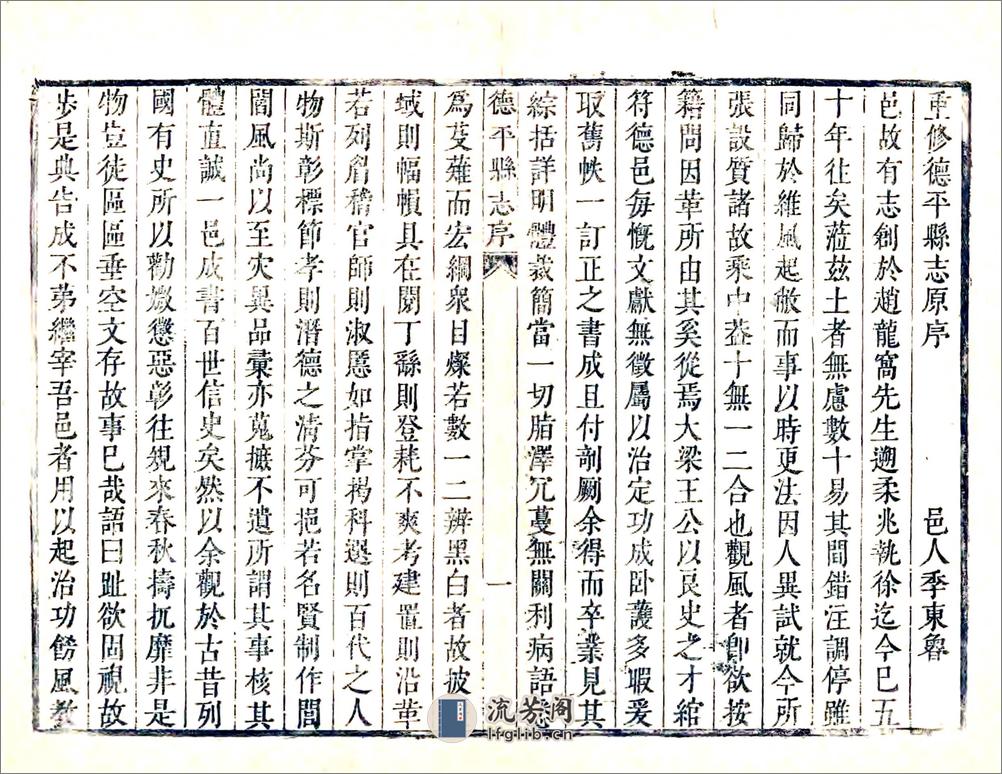 重修德平縣志原序
邑人季東魯
邑故有志創於趙龍窩先生遡柔兆執徐迄今已五
十年往矣蒞茲土者無慮數十易其間錯注調停雖
同歸於維風起敝而事以時更法因人異試就今所
張設質諸故乘中葢十無一二合也觀風者卽欲按
籍問因革所由其奚從焉大梁王公以良史之才綰
符德邑每慨文獻無徵屬以治定功成卧護多暇爰
取舊帙一訂正之書成且付剞劂余得而卒業見其
綜括詳明體裁簡當一切脂澤冗蔓無關利病語悉
德平縣志序
一
爲芟薙而宏綱衆目燦若數一二辨黑白者故披
域則幅幀具在閱丁繇則登耗不爽考建置則沿革
若列眉稽官師則淑慝如指掌揭科選則百代之人
物斯彰標節孝則潛德之淸芬可挹若名賢制作閭
閻風尚以至灾異品彙亦蒐摭不遺所謂其事核其
體直誠一邑成書百世信史矣然以余觀於古昔列
國有史所以勸媺懲惡彰往䂓來春秋擣扤靡非是
物豈徒區區垂空文存故事已哉語曰趾欲固視故
步是典告成不弟繼宰吾邑者用以起治功餝風教
流芳阁
lfglib.cn